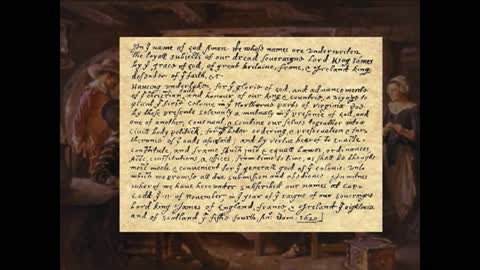 In y name of god Amen. We whose names are Underwriten,
the loyall subjects of our dread soveraigne Lord King James
by y grace of god, of great Britaine, franc, & Ireland king,
defender of y faith, &c
Haveing undertaken, for y glorie of god, and advancemente
of y christian faith and honour of our king & countrie, a voyage to
plant y first colonie in y Northerne parts of Virginia. Doe
by these presents solemnly & mutualy in y presence of god, and
one of another, covenant, & combine our selves togeather into a
civill body politick; for better ordering, & preservation & fur=
therance of y ends aforesaid; and by vertue hearof to enacte,
constitute, and frame shuch just & equall Lawes, ordinances,
Acts, constitutions, & offices, from time to time, as shall be thought
most meete & convenient for y generall good of y colonie: unto
which we promise all due submission and obedience. In witnes
wherof we have hereunder subscribed our names at Cap=
Codd y 11 of November, in y year of y raigne of our soveraigne
Lord king James of England, franc, & Ireland y eighteenth
and of Scotland y fiftie fourth. Ano: Dom. 1620.